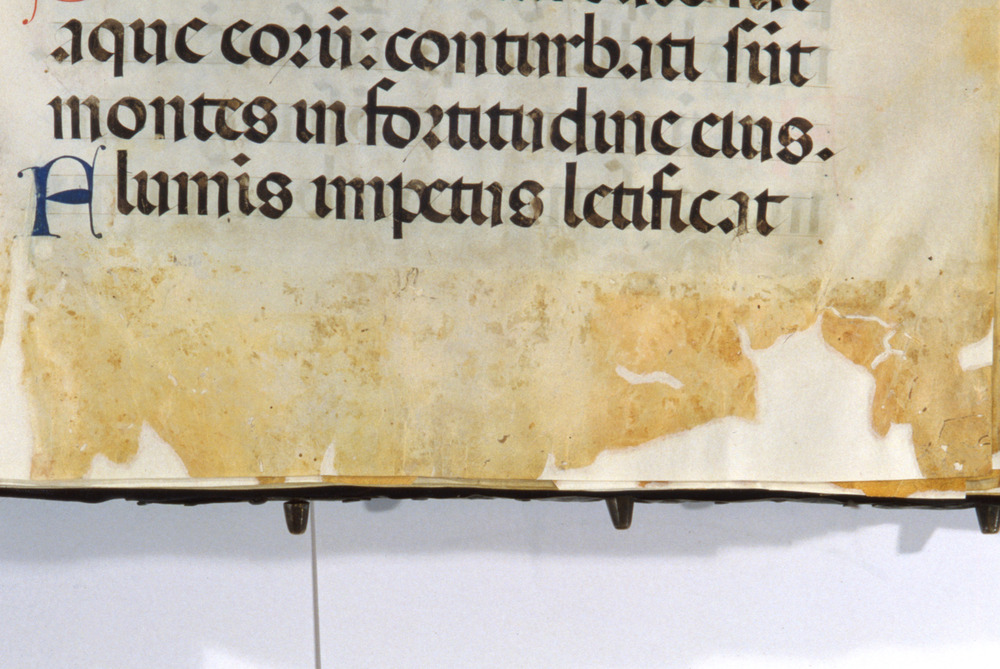 aque eorū: conturbati sūt
montes in fortitudine eius.
Fluminis impetus letificat